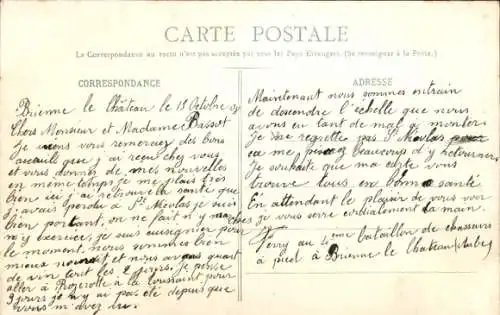 CARTE POSTALE
La Correspondance au recto n'est pas acceptée par tous les Pays Etrangers. (Se renseigner à la Poste.)
CORRESPONDANCE
Brienne le Château le 13 Octobre
Chers Monsieur et Madame Bassot
Je viens vous remercier des bons
accueils que j'ai reçu chez vous
et vous donner de mes nouvelles
en même temps je me plais très
bien ici j'ai retrouvé la santé que
j'avais perdu à St Nicolas je suis
bien portant, on ne fait n'y marches
n'y exercices, je suis cuisinier pour
le moment, nous sommes bien
mieux nourri et nous avons quart
de vin tout les 2 jours. Je pense
aller à Rozerotte à la toussaint pour
3 jours je n'y ai pas été depuis que
vous m'avez vu.
ADRESSE
Maintenant nous sommes entrain
de descendre l'échelle que nous
avons eu tant de mal à monter
Je ne regrette pas St Nicolas
ça me beaucoup d'y retourner
Je souhaite que ma carte vous
trouve tous en bonne santé
En attendant le plaisir de vous voir
je vous serre cordialement la main.
Ferry au ème bataillon de chasseurs
à pied à Brienne le Château (Aube)